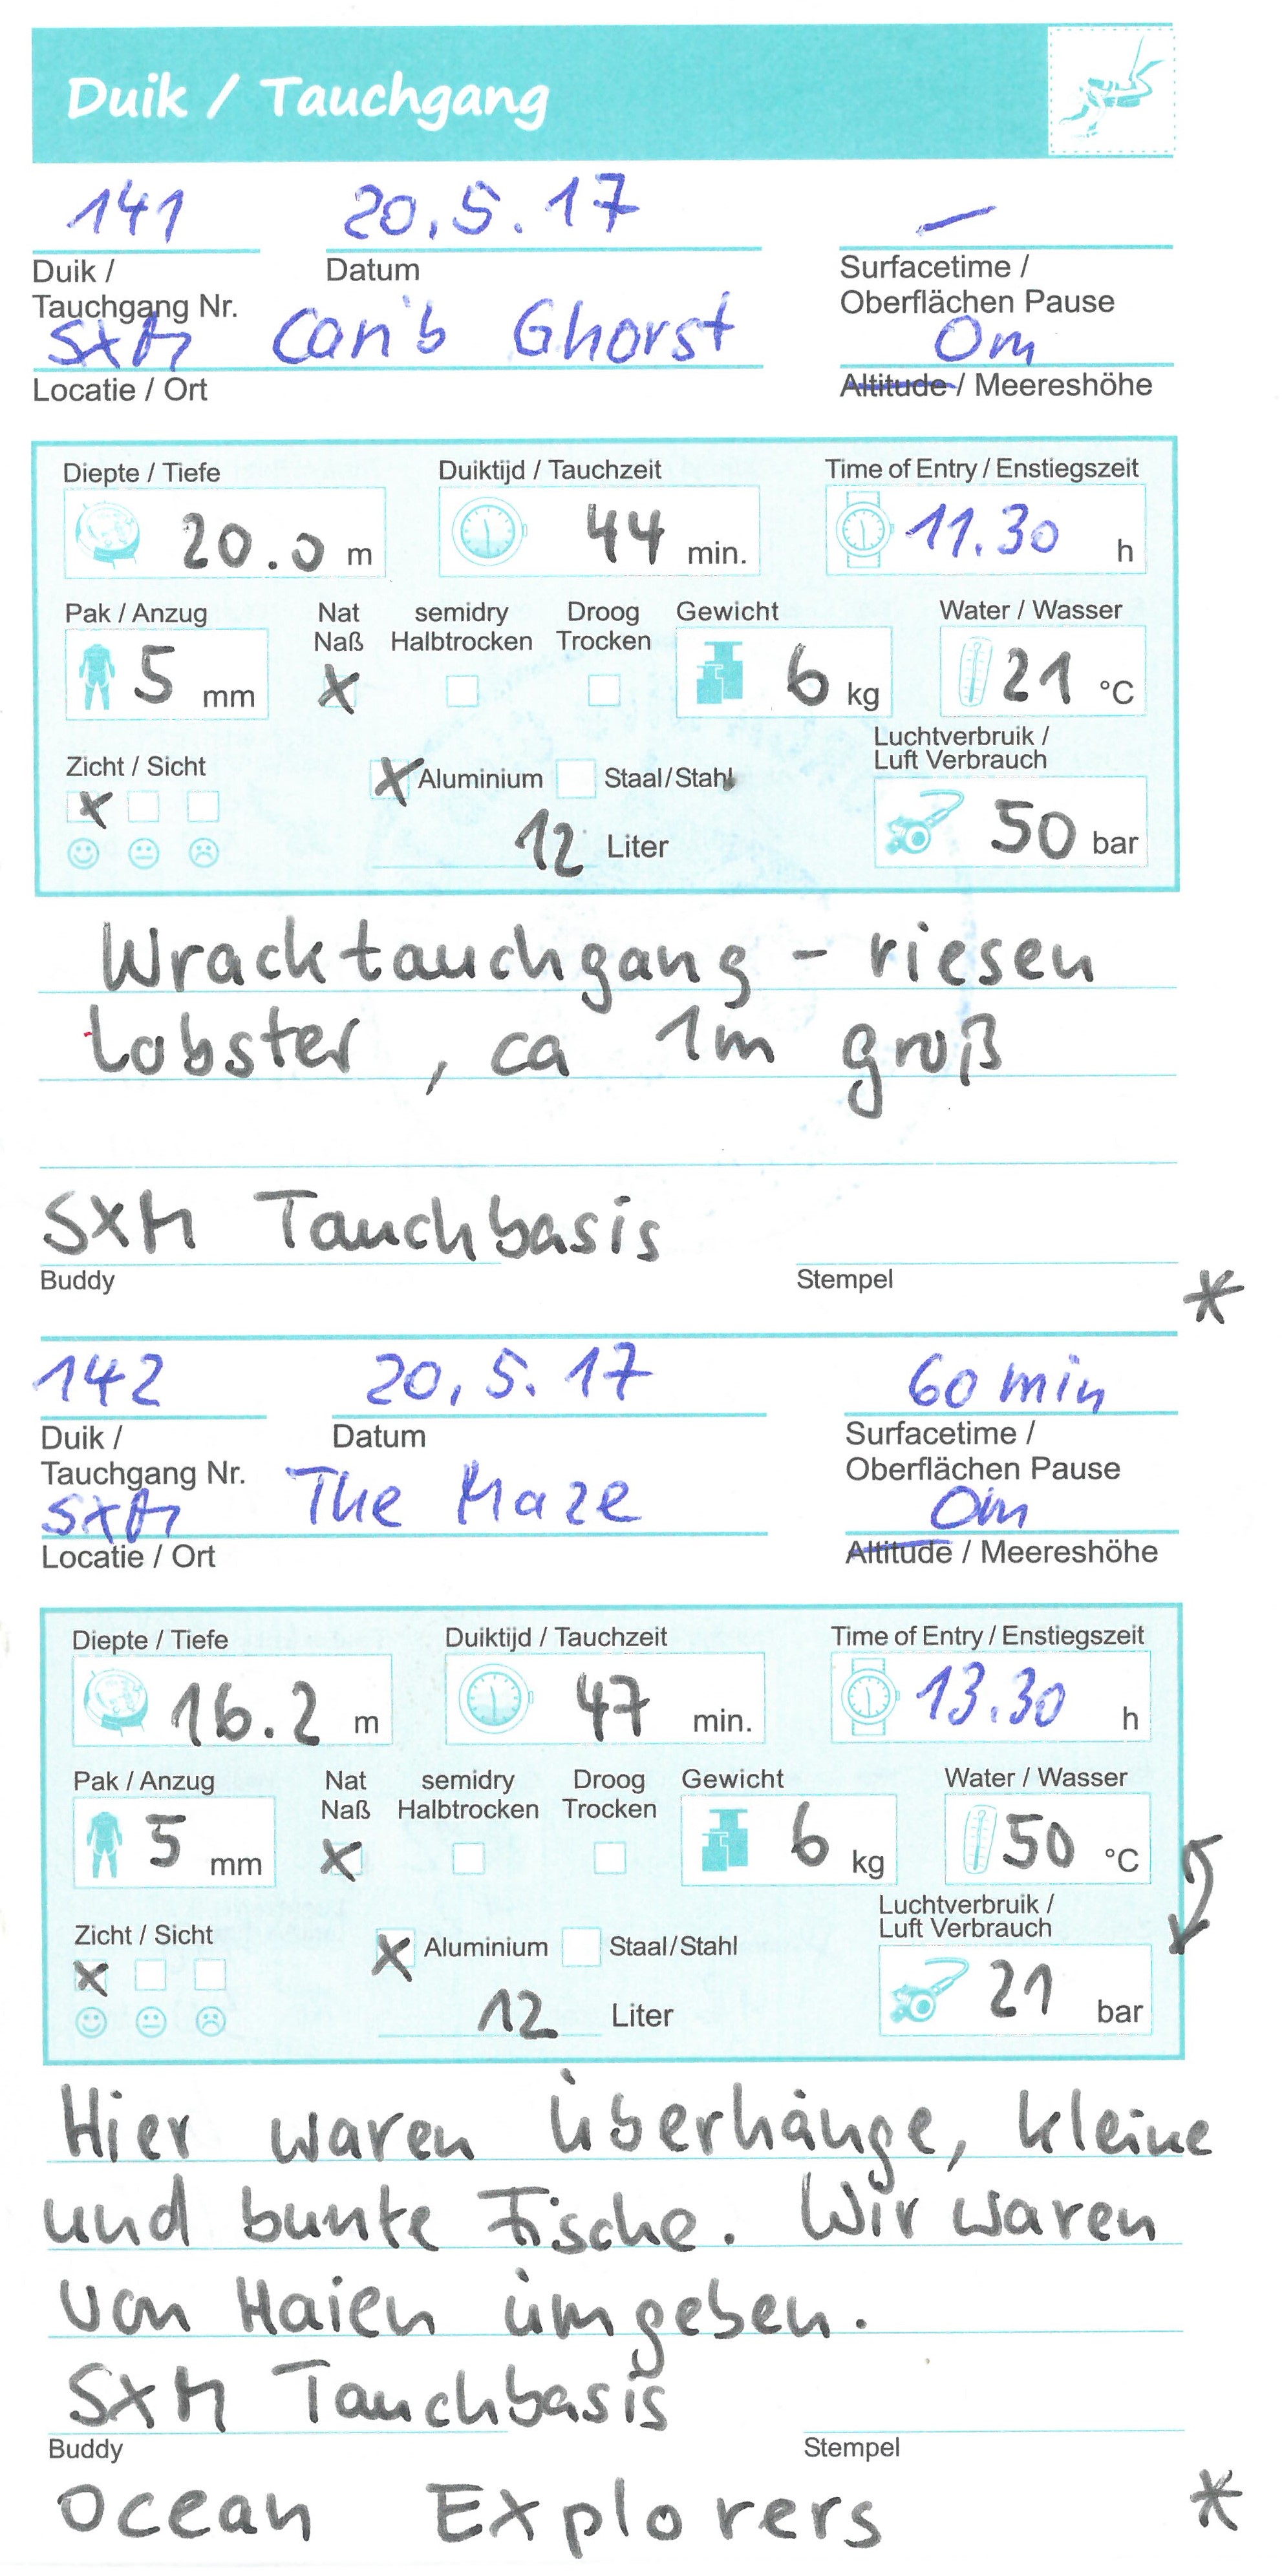 Duik / Tauchgang
141 20.5.17 —
Duik / Datum Surfacetime /
Tauchgang Nr. Oberflächen Pause
SXM Carib Ghorst 0m
Locatie / Ort Altitude / Meereshöhe
Diepte / Tiefe Duiktijd / Tauchzeit Time of Entry / Enstiegszeit
20.0 m 44 min. 11.30 h
Pak / Anzug Nat semidry Droog Gewicht Water / Wasser
Naß Halbtrocken Trocken
5 mm X 6 kg 21 °C
Luchtverbruik /
Zicht / Sicht X Aluminium Staal/Stahl Luft Verbrauch
X 12 Liter 50 bar
Wracktauchgang - riesen
Lobster, ca 1m groß
SXM Tauchbasis
Buddy Stempel *
142 20.5.17 60 min
Duik / Datum Surfacetime /
Tauchgang Nr. Oberflächen Pause
SXM The Maze 0m
Locatie / Ort Altitude / Meereshöhe
Diepte / Tiefe Duiktijd / Tauchzeit Time of Entry / Enstiegszeit
16.2 m 47 min. 13.30 h
Pak / Anzug Nat semidry Droog Gewicht Water / Wasser
Naß Halbtrocken Trocken
5 mm X 6 kg 50 °C
Luchtverbruik /
Zicht / Sicht X Aluminium Staal/Stahl Luft Verbrauch
X 12 Liter 21 bar
Hier waren Überhänge, kleine
und bunte Fische. Wir waren
von Haien umgeben.
SXM Tauchbasis
Buddy Stempel
Ocean Explorers *